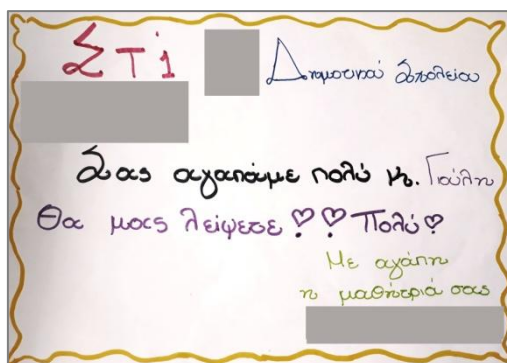 Στ'1 Δημοτικού Σχολείου
Σας αγαπάμε πολύ κ. Γιούλη
Θα μας λείψετε Πολύ
Με αγάπη
η μαθήτριά σας